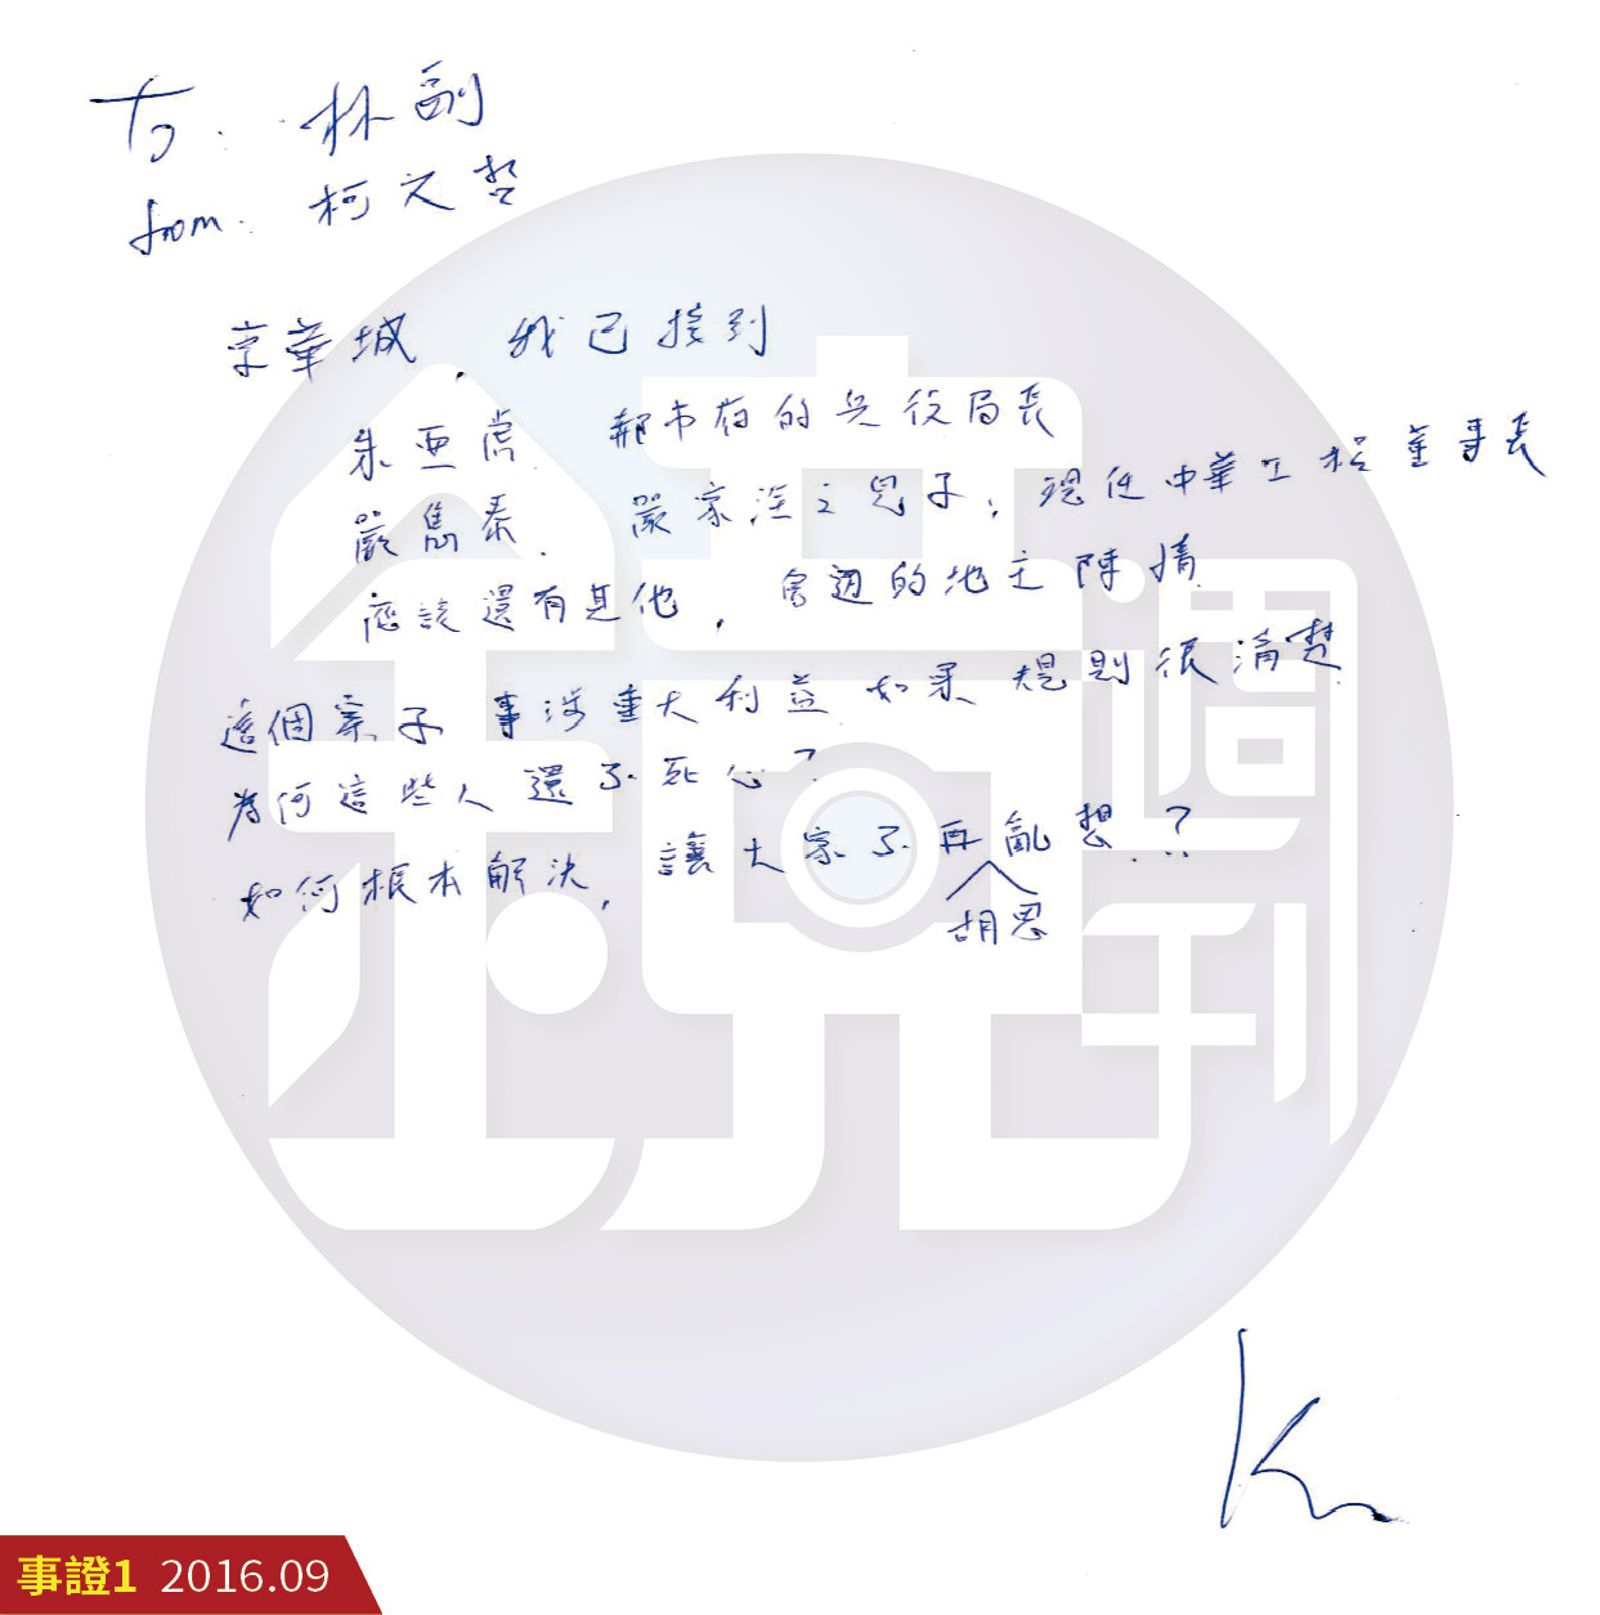 To: 林副
from: 柯文哲
京華城，我已接到
朱亞虎. 郝市府的兵役局長
嚴雋泰. 嚴家淦之兒子，現任中華工程董事長
應該還有其他，會逼的地主陳情.
這個案子 事涉重大利益 如果 規則很清楚
為何這些人 還不死心？
如何根本解決， 讓大家不再胡思亂想..？
K
鏡週刊
事證1 2016.09